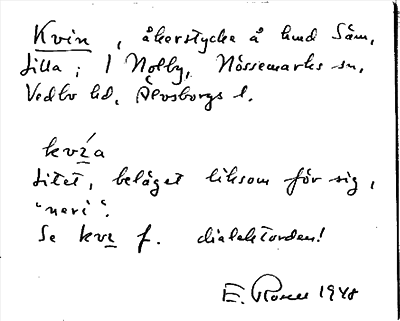 Kvin, åkerstycke å lund Säm,
Lilla; 1 Nolby, Nössemarks sn,
Vedbo hd, Älvsborgs l.
kvía
Litet, beläget liksom för sig,
"nevi".
Se kvi f. dialektorden!
E. Rosell 1948